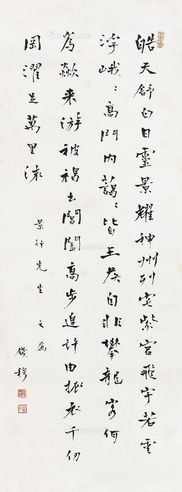 皓天舒白日靈景耀神州列宅紫宮飛宇若雲
浮峨〻高門内藹〻皆王侯自非攀龍客何
為欻来游被褐出閶闔高步追許由振衣千仞
岡濯足萬里流
景行先生 之屬
錢穆